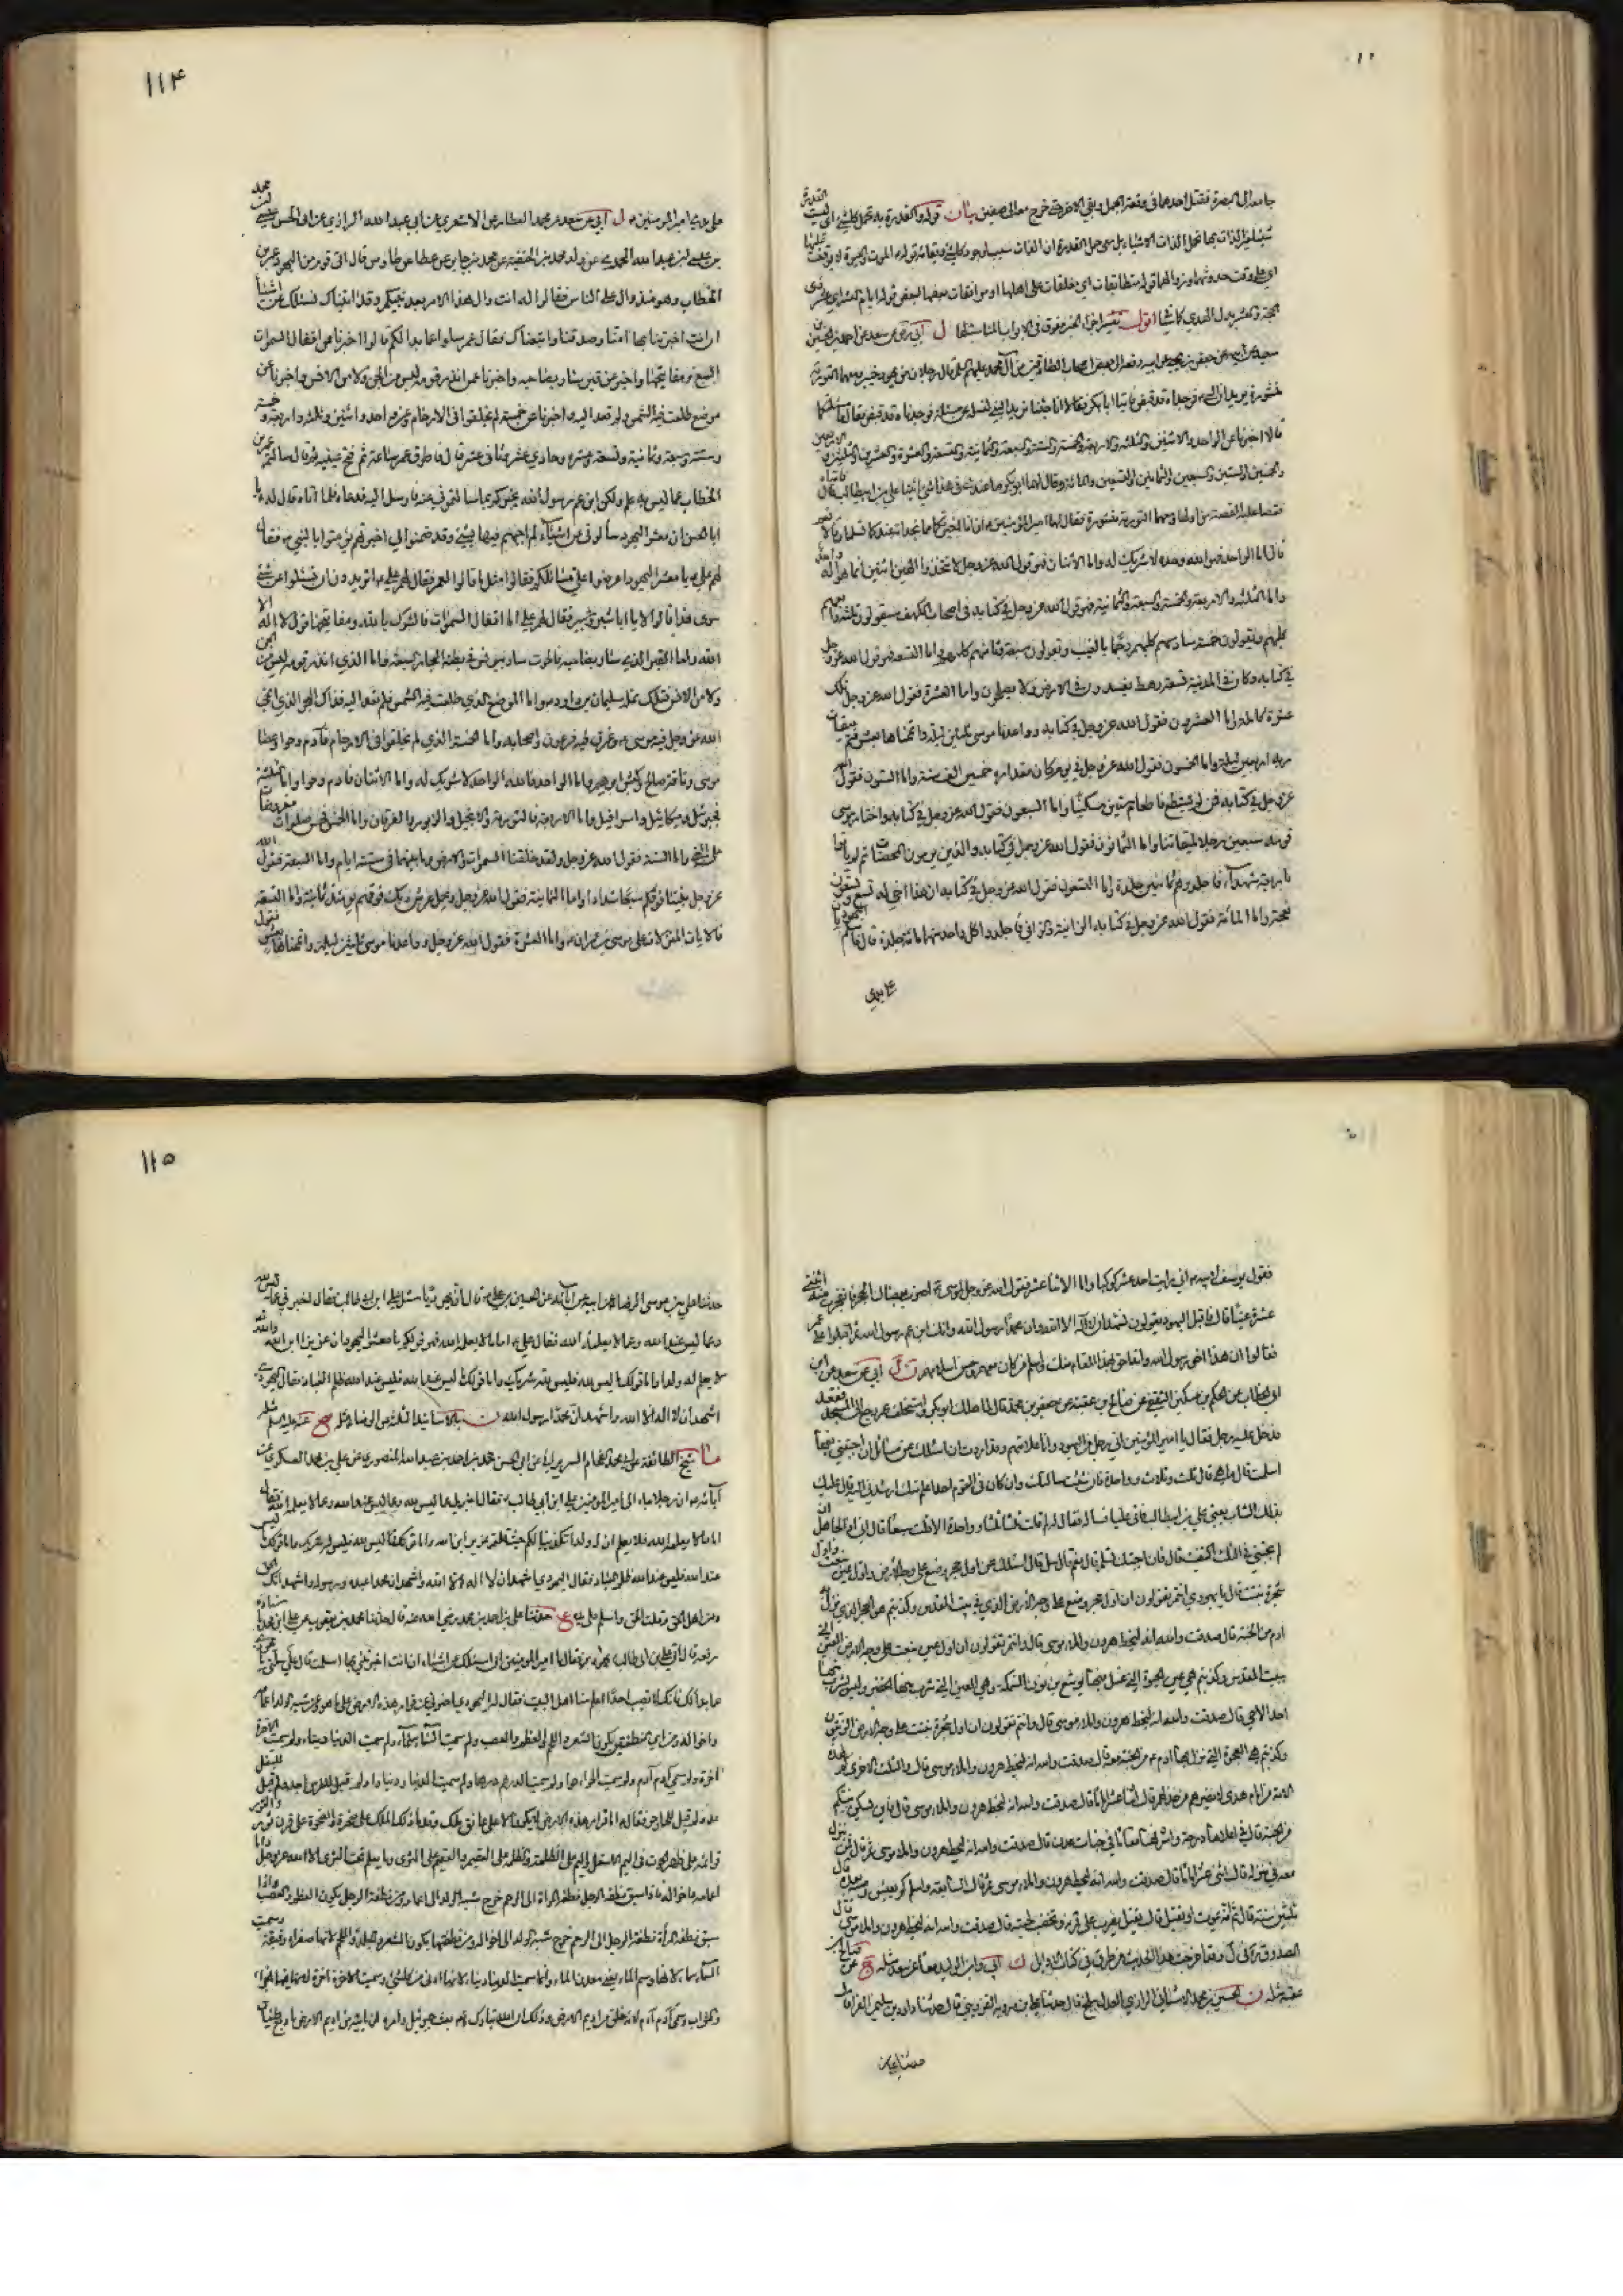 ۱۱۴
جامعه الى البصرة فقتل احدهما في وقعة الجمل وبقي الاخر حتى خرج معه الى صفين بيان قوله والقدرة
اقول
ل ابي عن سعد عن احمد بن الحسين
سعيد عن ابيه عن جعفر بن يحيى عن ابيه رفعه الى بعض الصادقين من آل محمد عليهم السلم قال جاء رجلان من يهود خيبر ومعهما التورية
منشورة يريدان النبي فوجداه قد قبض فاتيا ابا بكر فقالا انا جئنا نريد النبي لنسأله عن مسئلة فوجدناه قد قبض فقال وما مسئلتكما
قالا اخبرنا عن الواحد والاثنين والثلثة والاربعة والخمسة والستة والسبعة والثمانية والتسعة والعشرة والعشرين والثلثين والاربعين
والخمسين والستين والسبعين والثمانين والتسعين والمائة فقال لهما ابو بكر ما عندي في هذا شئ ائتيا علي بن ابيطالب قال فاتياه
فقصا عليه القصة من اولها ومعهما التورية منشورة فقال لهما امير المؤمنين ان انا اخبرتكما بما تجدانه عندكما تسلمان قالا نعم
قال اما الواحد فهو الله وحده لا شريك له واما الاثنان فهو قول الله عز وجل لا تتخذوا الهين اثنين انما هو اله واحد
واما الثلثة والاربعة والخمسة والستة والسبعة والثمانية فهو قول الله عز وجل في كتابه في اصحاب الكهف سيقولون ثلثة رابعهم
كلبهم ويقولون خمسة سادسهم كلبهم رجما بالغيب ويقولون سبعة وثامنهم كلبهم واما التسعة فهو قول الله عز وجل
في كتابه وكان في المدينة تسعة رهط يفسدون في الارض ولا يصلحون واما العشرة فقول الله عز وجل تلك
عشرة كاملة واما العشرون فقول الله عز وجل في كتابه وواعدنا موسى ثلثين ليلة واتممناها بعشر فتم ميقات
ربه اربعين ليلة واما الخمسون فقول الله عز وجل في يوم كان مقداره خمسين الف سنة واما الستون فقول الله
عز وجل في كتابه فمن لم يستطع فاطعام ستين مسكينا واما السبعون فقول الله عز وجل في كتابه واختار موسى
قومه سبعين رجلا لميقاتنا واما الثمانون فقول الله عز وجل في كتابه والذين يرمون المحصنات ثم لم ياتوا
باربعة شهداء فاجلدوهم ثمانين جلدة واما التسعون فقول الله عز وجل في كتابه ان هذا اخي له تسع وتسعون
نعجة واما المائة فقول الله عز وجل في كتابه الزانية والزاني فاجلدوا كل واحد منهما مائة جلدة قال فاسلم اليهوديان
على يدي
على يدي امير المؤمنين ل ابي عن سعد عن محمد العطار عن الاشعري عن ابي عبد الله الرازي عن ابي الحسن عيسى
الخطاب وهو يومئذ وال على الناس فقالوا له انت والي هذا الامر بعد نبيكم وقد اتيناك نسئلك عن اشياء
ان انت اخبرتنا بها امنا وصدقنا واتبعناك فقال عمر سلوا عما بدا لكم قالوا اخبرنا عن اقفال السموات
السبع ومفاتيحها واخبرنا عن قبر سار بصاحبه واخبرنا عمن انذر قومه ليس من الجن ولا من الانس واخبرنا عن
موضع طلعت فيه الشمس ولم تعد اليه واخبرنا عن خمسة لم يخلقوا في الارحام وعن واحد واثنين وثلثة واربعة وخمسة
وستة وسبعة وثمانية وتسعة وعشرة وحادي عشر وثاني عشر قال فاطرق عمر ساعة ثم فتح عينيه ثم قال سالتم عمر بن
الخطاب عما ليس به علم ولكن ابن عم رسول الله يخبركم بما سالتموني عنه فارسل اليه فدعاه فلما اتاه قال له يا
ابا الحسن ان معشر اليهود سالوني عن اشياء لم اجبهم فيها بشئ وقد ضمنوا لي ان اخبرتهم ان يؤمنوا بالنبي فقال
لهم علي يا معشر اليهود اعرضوا علي مسائلكم فقالوا مثل ما قالوا لعمر فقال لهم علي اتريدون ان تسئلوا عن شئ
سوى هذا قالوا لا يا ابا شبر وشبير فقال لهم علي اما اقفال السموات فالشرك بالله ومفاتيحها قول لا اله الا
الله واما القبر الذي سار بصاحبه فالحوت سار بيونس في بطنه البحار السبعة واما الذي انذر قومه ليس من الجن
ولا من الانس فتلك نملة سليمان بن داود واما الموضع الذي طلعت فيه الشمس فلم تعد اليه فذاك البحر الذي انجى
الله عز وجل فيه موسى وغرق فيه فرعون واصحابه واما الخمسة الذين لم يخلقوا في الارحام فآدم وحوا وعصا
موسى وناقة صالح وكبش ابراهيم واما الواحد فالله الواحد لا شريك له واما الاثنان فادم وحوا واما الثلثة
فجبرئيل وميكائيل واسرافيل واما الاربعة فالتورية والانجيل والزبور والفرقان واما الخمس فخمس صلوات مفروضات
واما الستة فقول الله عز وجل ولقد خلقنا السموات والارض وما بينهما في ستة ايام واما السبعة فقول الله
عز وجل وبنينا فوقكم سبعا شدادا واما الثمانية فقول الله عز وجل ويحمل عرش ربك فوقهم يومئذ ثمانية واما التسعة
فالايات المنزلات على موسى بن عمران واما العشرة فقول الله عز وجل وواعدنا موسى ثلثين ليلة واتممناها بعشر
۱۱۵
فقول يوسف لابيه اني رايت احد عشر كوكبا واما الاثنا عشر فقول الله عز وجل لموسى اضرب بعصاك الحجر فانفجرت منه اثنتا
عشرة عينا قال فاقبل اليهود يقولون نشهد ان لا اله الا الله وان محمدا رسول الله وانك ابن عم رسول الله ثم اقبلوا على عمر
فقالوا نشهد ان هذا اخو رسول الله وانه احق بهذا المقام منك واسلم من كان معهم وحسن اسلامهم ل ابي عن سعد عن ابن
ابي الخطاب عن الحكم بن مسكين الثقفي عن صالح بن عقبة عن جعفر بن محمد قال لما هلك ابو بكر واستخلف عمر رجع الى المسجد فقعد
فدخل عليه رجل فقال يا امير المؤمنين اني رجل من اليهود وانا علامتهم وقد اردت ان اسئلك عن مسائل ان اجبتني فيها
اسلمت قال ما هي قال ثلث وثلاث وواحدة فان شئت سالتك وان كان في القوم احد اعلم منك ارشدني اليه قال عليك
بذلك الشاب يعني علي بن ابيطالب فاتى عليا فساله فقال له لم قلت ثلثا وثلثا وواحدة الا قلت سبعا قال اني اذا لجاهل ان
لم تجبني في الثلث اكتفيت قال فان اجبتك تسلم قال نعم قال سل قال اسئلك عن اول حجر وضع على وجه الارض واول عين نبعت واول
شجرة نبتت قال يا يهودي انتم تقولون ان اول حجر وضع على وجه الارض الذي في بيت المقدس وكذبتم هو الحجر الذي نزل به
ادم من الجنة قال صدقت والله انه لبخط هرون واملاء موسى قال وانتم تقولون ان اول عين نبعت على وجه الارض العين التي
ببيت المقدس وكذبتم هي عين الحيوة التي غسل فيها يوشع بن نون السمكة وهي العين التي شرب منها الخضر وليس يشرب منها
احد الا حي قال صدقت والله انه لبخط هرون واملاء موسى قال وانتم تقولون ان اول شجرة نبتت على وجه الارض الزيتون
وكذبتم هي العجوة التي نزل بها ادم من الجنة معه قال صدقت والله انه لبخط هرون واملاء موسى قال والثلث الاخرى كم لهذه
الامة من امام هدى لا يضرهم من خذلهم قال اثنا عشر اماما قال صدقت والله انه لبخط هرون واملاء موسى قال فاين يسكن نبيكم
من الجنة قال في اعلاها درجة واشرفها مكانا في جنات عدن قال صدقت والله انه لبخط هرون واملاء موسى ثم قال فمن ينزل
معه في منزله قال اثنى عشر اماما قال صدقت والله انه لبخط هرون واملاء موسى ثم قال السابعة فاسلم كم يعيش وصيه بعده قال
ثلثين سنة قال ثم مه يموت او يقتل قال يقتل يضرب على قرنه وتخضب لحيته قال صدقت والله انه لبخط هرون واملاء موسى قال
الصدوق في ل وقد اخرجت هذا الحديث من طرق في كتاب الاوايل ك ابي وابن الوليد معا عن سعد مثله ج عن صالح بن
عقبة مثله ن الحسين بن محمد الاشناني الرازي العدل ببلخ قال حدثنا علي بن مهرويه القزويني قال حدثنا داود بن سليمان الفرا قال
حدثنا علي بن
حدثنا علي بن موسى الرضا عن ابيه عن آبائه عن الحسين بن علي قال ان يهوديا سئل علي بن ابي طالب فقال اخبرني عما ليس لله
وعما ليس عند الله وعما لا يعلمه الله فقال علي اما ما لا يعلمه الله فهو قولكم يا معشر اليهود ان عزيز ابن الله والله
لا يعلم له ولدا واما قولك ما ليس لله فليس لله شريك واما قولك ما ليس عند الله فليس عند الله ظلم للعباد فقال اليهودي
اشهد ان لا اله الا الله واشهد ان محمدا رسول الله ن بالاسانيد الثلث عن الرضا مثله صح عنه عليه السلم مثله
ما شيخ الطائفة عن ابي محمد الفحام السر من رائي عن ابي الحسن محمد بن احمد بن عبيد الله المنصوري عن علي بن محمد العسكري عن
آبائه ان رجلا جاء الى امير المؤمنين علي ابن ابي طالب فقال اخبرني عما ليس لله وعما ليس عند الله وعما لا يعلمه الله فقال
اما ما لا يعلمه الله فلا يعلم ان له ولدا تكذيبا لكم حيث قلتم عزير ابن الله واما قولك ما ليس لله فليس له شريك واما قولك ما ليس
عند الله فليس عند الله ظلم للعباد فقال اليهودي اشهد ان لا اله الا الله واشهد ان محمدا عبده ورسوله واشهد انك الحق
ومن اهل الحق وقلت الحق واسلم على يده ع حدثنا علي بن احمد بن محمد رضي الله عنه قال حدثنا محمد بن يعقوب عن علي بن محمد باسناده
رفعه قال اتى علي بن ابي طالب يهودي فقال يا امير المؤمنين اني اسئلك عن اشياء ان انت اخبرتني بها اسلمت قال علي سلني يا يهودي
عما بدا لك فانك لا تصيب احدا اعلم منا اهل البيت فقال له اليهودي اخبرني عن قرار هذه الارض على ما هو وعن شبه الولد اعمامه
واخواله وعن اي النطفتين يكون الشعر والدم واللحم والعظم والعصب ولم سميت السماء سماء ولم سميت الدنيا دنيا ولم سميت الاخرة
اخرة ولم سمي آدم آدم ولم سميت حواء حوا ولم سمي الدرهم درهما ولم سمي الدينار دينارا ولم قيل للفرس اجد ولم قيل للبغل
عد ولم قيل للحمار حر فقال اما قرار هذه الارض لا يكون الا على عاتق ملك وقدما ذلك الملك على صخرة والصخرة على قرن ثور والثور
قوائمه على ظهر الحوت في اليم الاسفل واليم على الظلمة والظلمة على العقيم والعقيم على الثرى وما يعلم تحت الثرى الا الله عز وجل واما شبه الولد
اعمامه واخواله فاذا سبق نطفة الرجل نطفة المراة الى الرحم خرج شبه الولد الى اعمامه ومن نطفة الرجل يكون العظم والعصب واذا
سبق نطفة المرأة نطفة الرجل الى الرحم خرج شبه الولد الى اخواله ومن نطفتها يكون الشعر والجلد واللحم لانها صفراء رقيقة وسميت
السماء سماء لانها وسم الماء يعني معدن الماء وانما سميت الدنيا دنيا لانها ادنى من كل شئ وسميت الاخرة اخرة لان فيها الجزاء
والثواب وسمي آدم آدم لانه خلق من اديم الارض وذلك ان الله تبارك وتعالى بعث جبرئيل وامره ان ياتيه من اديم الارض